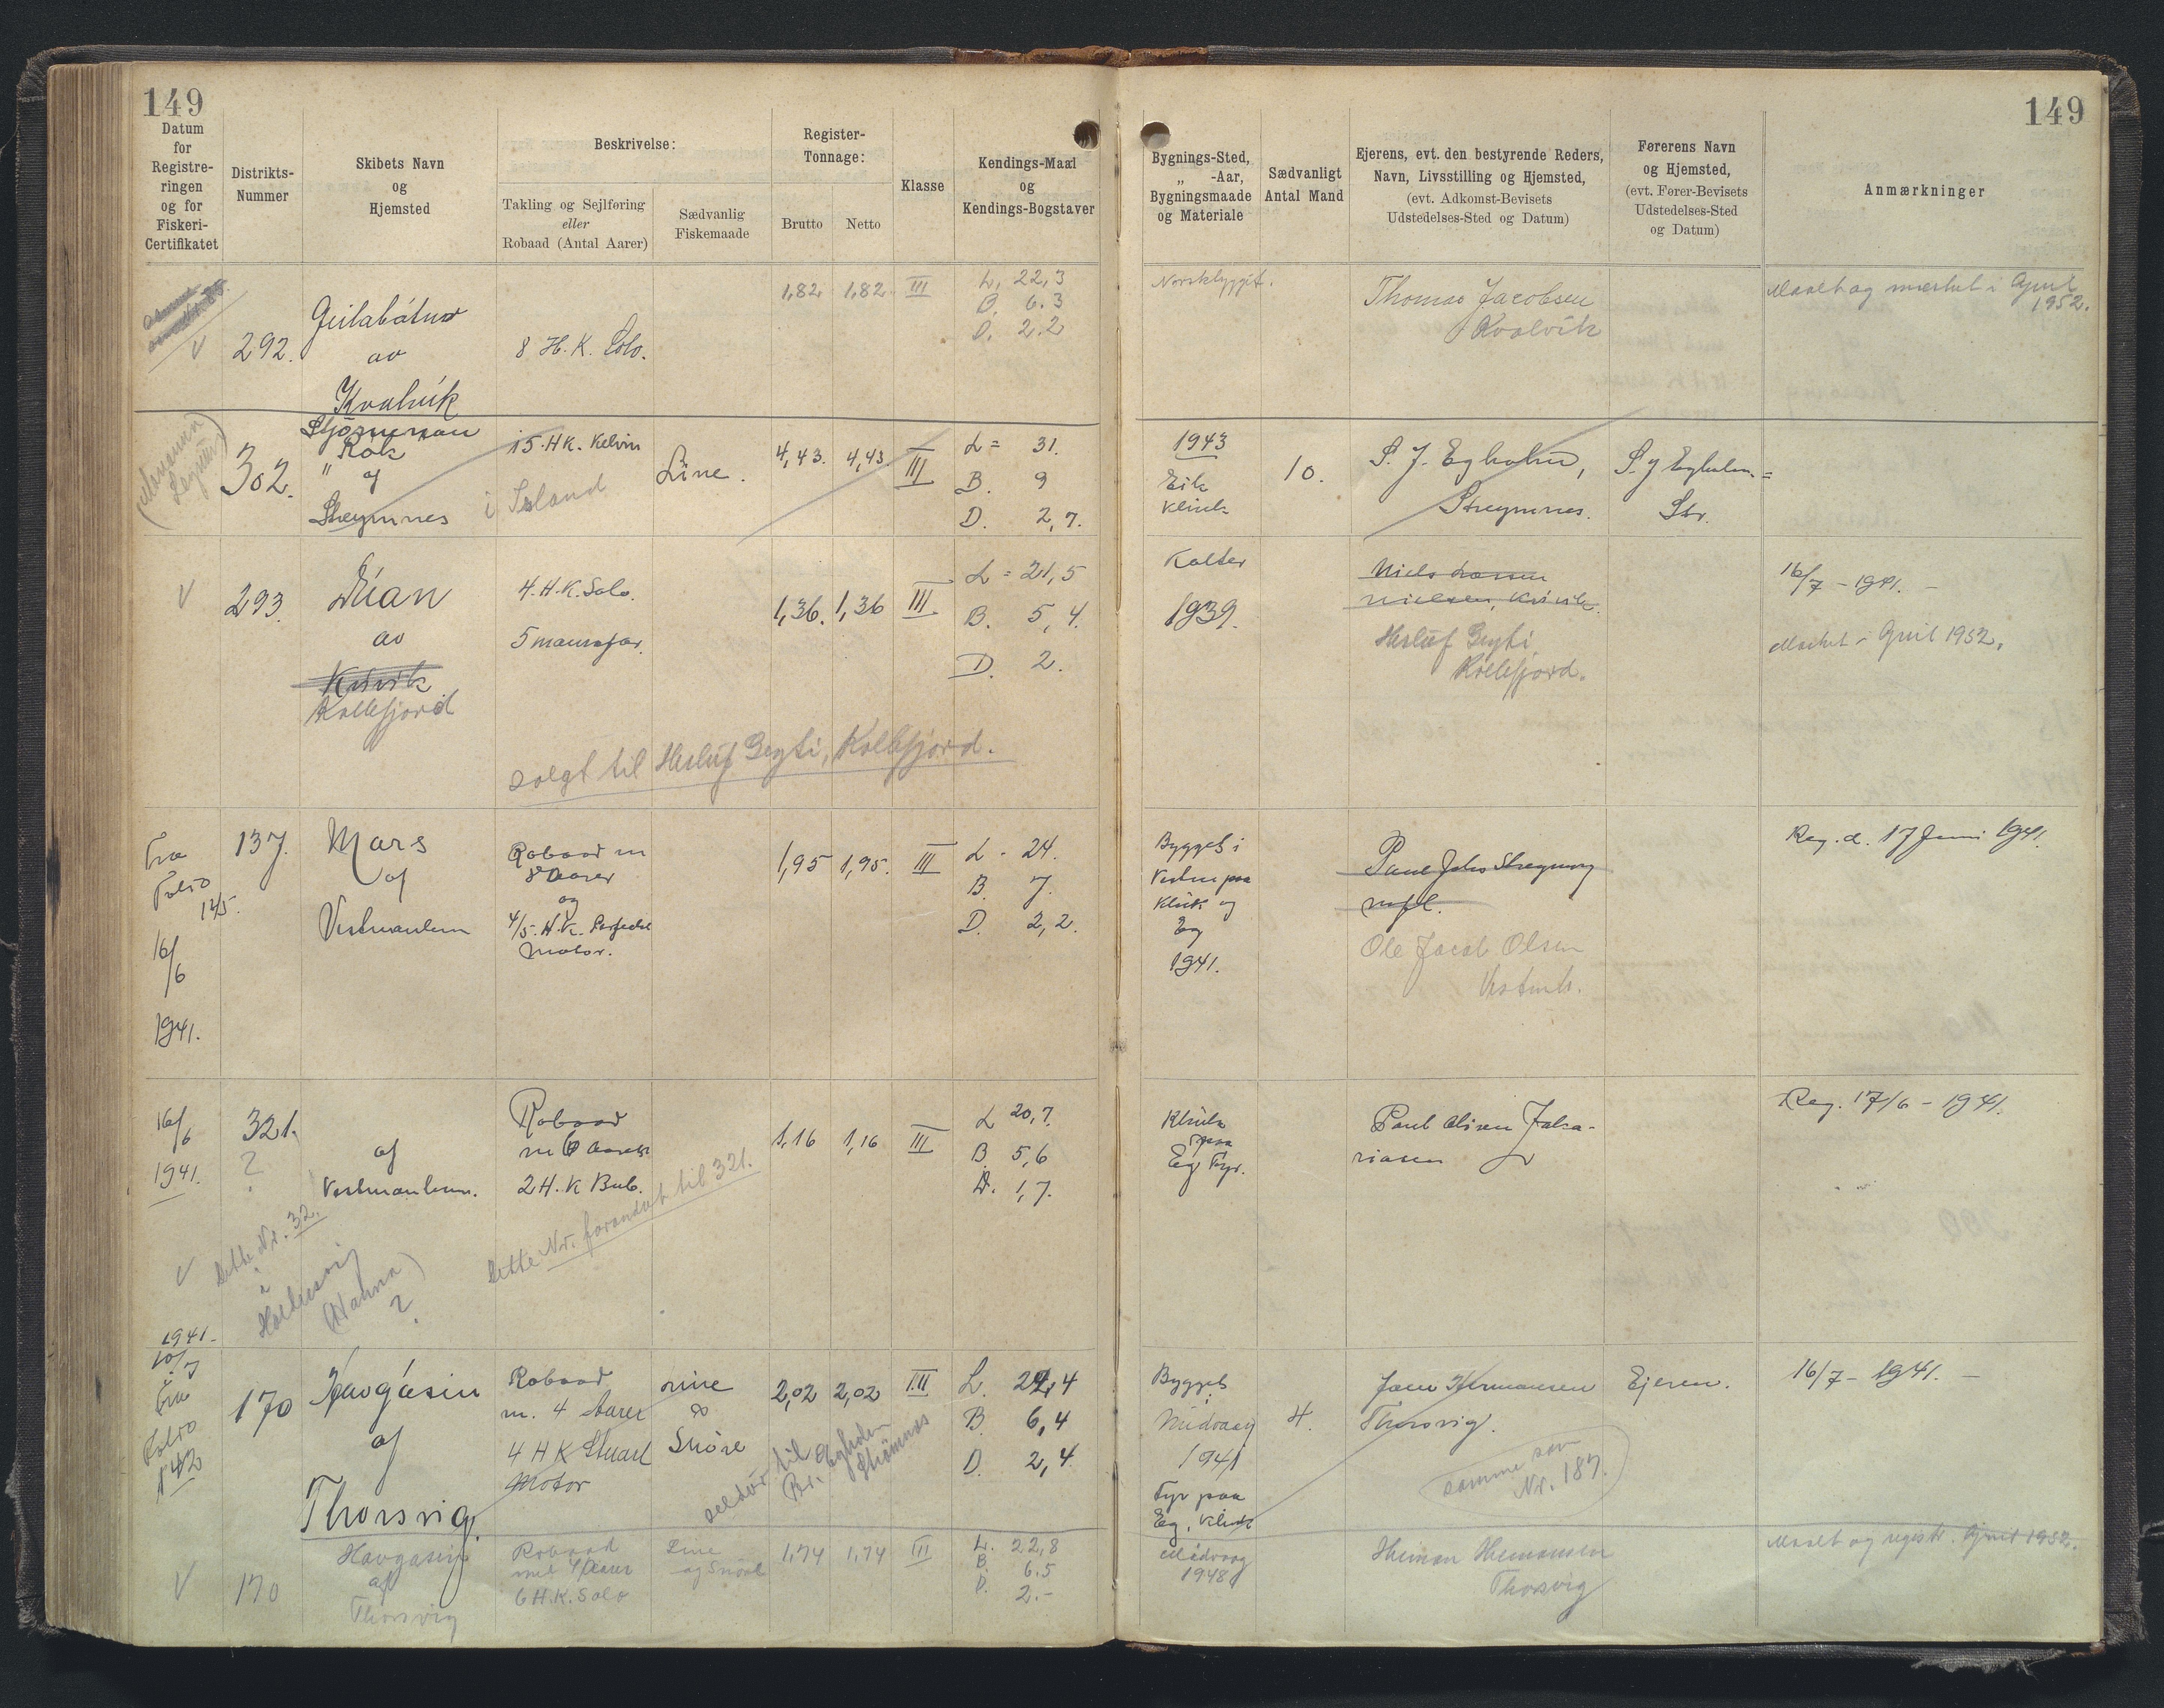 149
149
Datum
for
Registre-
ringen
og for
Fiskeri-
Certifikatet
Distrikts-
Nummer
Skibets Navn
og
Hjemsted
Beskrivelse:
Takling og Sejlføring
eller
Robaad (Antal Aarer)
Sædvanlig
Fiskemaade
Register-
Tonnage:
Brutto
Netto
Klasse
Kendings-Maal
og
Kendings-Bogstaver
Bygnings-Sted,
„ -Aar,
Bygningsmaade
og Materiale
Sædvanligt
Antal Mand
Ejerens, evt. den bestyrende Reders,
Navn, Livsstilling og Hjemsted,
(evt. Adkomst-Bevisets
Udstedelses-Sted og Datum)
Førerens Navn
og Hjemsted,
(evt. Fører-Bevisets
Udstedelses-Sted
og Datum)
Anmærkninger
V
292.
av
Kvalvík
8 H.K. Solo.
1,82 1,82 III
L. 22,3
B. 6.3
D. 2.2
Norskbygget.
Thomas Jacobsen
Kvalvík
Maalt og merket i April
1952.
302.
" af
Streymnes
15. HK. Kelvin
i Island
Line.
4,43. 4,43 III
L = 31.
B. 9
D. 2,7.
1943
Eik
Klink
10.
S. J. Egholm,
Streymnes.
S. J Egholm =
Str.
V
293.
av
Kvivik
Kollefjord
4. H.K. Solo.
5 mannafar.
1,36. 1,36 III
L = 21,5
B. 5,4.
D. 2.
Kolter
1939.
Niels
Nielsen, Kvivik.
Herluf Geyti,
Kollefjord.
16/7 - 1941. -
Merket i April 1952.
solgt til Herluf Geyti, Kollefjord.
Fra
Folio
125.
16/6
1941.
137.
Mars
af
Vestmanhavn
Robaad m
8 Aarer
og
4/5. H.K.
Motor.
1,95 1,95. III
L - 24.
B. 7.
D. 2,2.
Bygget i
Klink og
Eg
1941.
Ole Jacob Olsen
Vestmh.
Reg. d. 17 Juni 1941.
16/6
1941.
321.
?
af
Vestmanhavn.
Robaad
m 6 Aarer
2 H.K Bub.
1,16 1,16 III
L 20,7.
B. 5,6
D. 1,7.
Klink
paa
Eg Fyr.
Reg. 17/6 - 1941.
V
Dette Nr. 32.
i
(Hanna)
?
Dette Nr. forandret til 321.
1941.
10/7
Fra
Folio
142
170
af
Thorsvig.
Robaad
m. 4 Aarer
4 H K Stuart
Motor
Line
&
Snøre
2,02 2,02 III
L. 24,4
B. 6,4
D. 2,4
seldur til
Bygget
Midvaag
1941
Fyr paa
Eg, Klink
4.
Hermansen
Thorsvig.
samme som
Nr. 187.
Ejeren.
16/7 - 1941. -
V
170
Havgasin
af
Thorsvig
Robaad
med 4 Aarer
6 H.K. Solo
Line
og Snøre
1,74 1,74 III
L. 22,8
B. 6.5
D. 2.-
Midvaag
1948
Heman Hemansen
Thorsvig
Maalt og registr. April 1952.